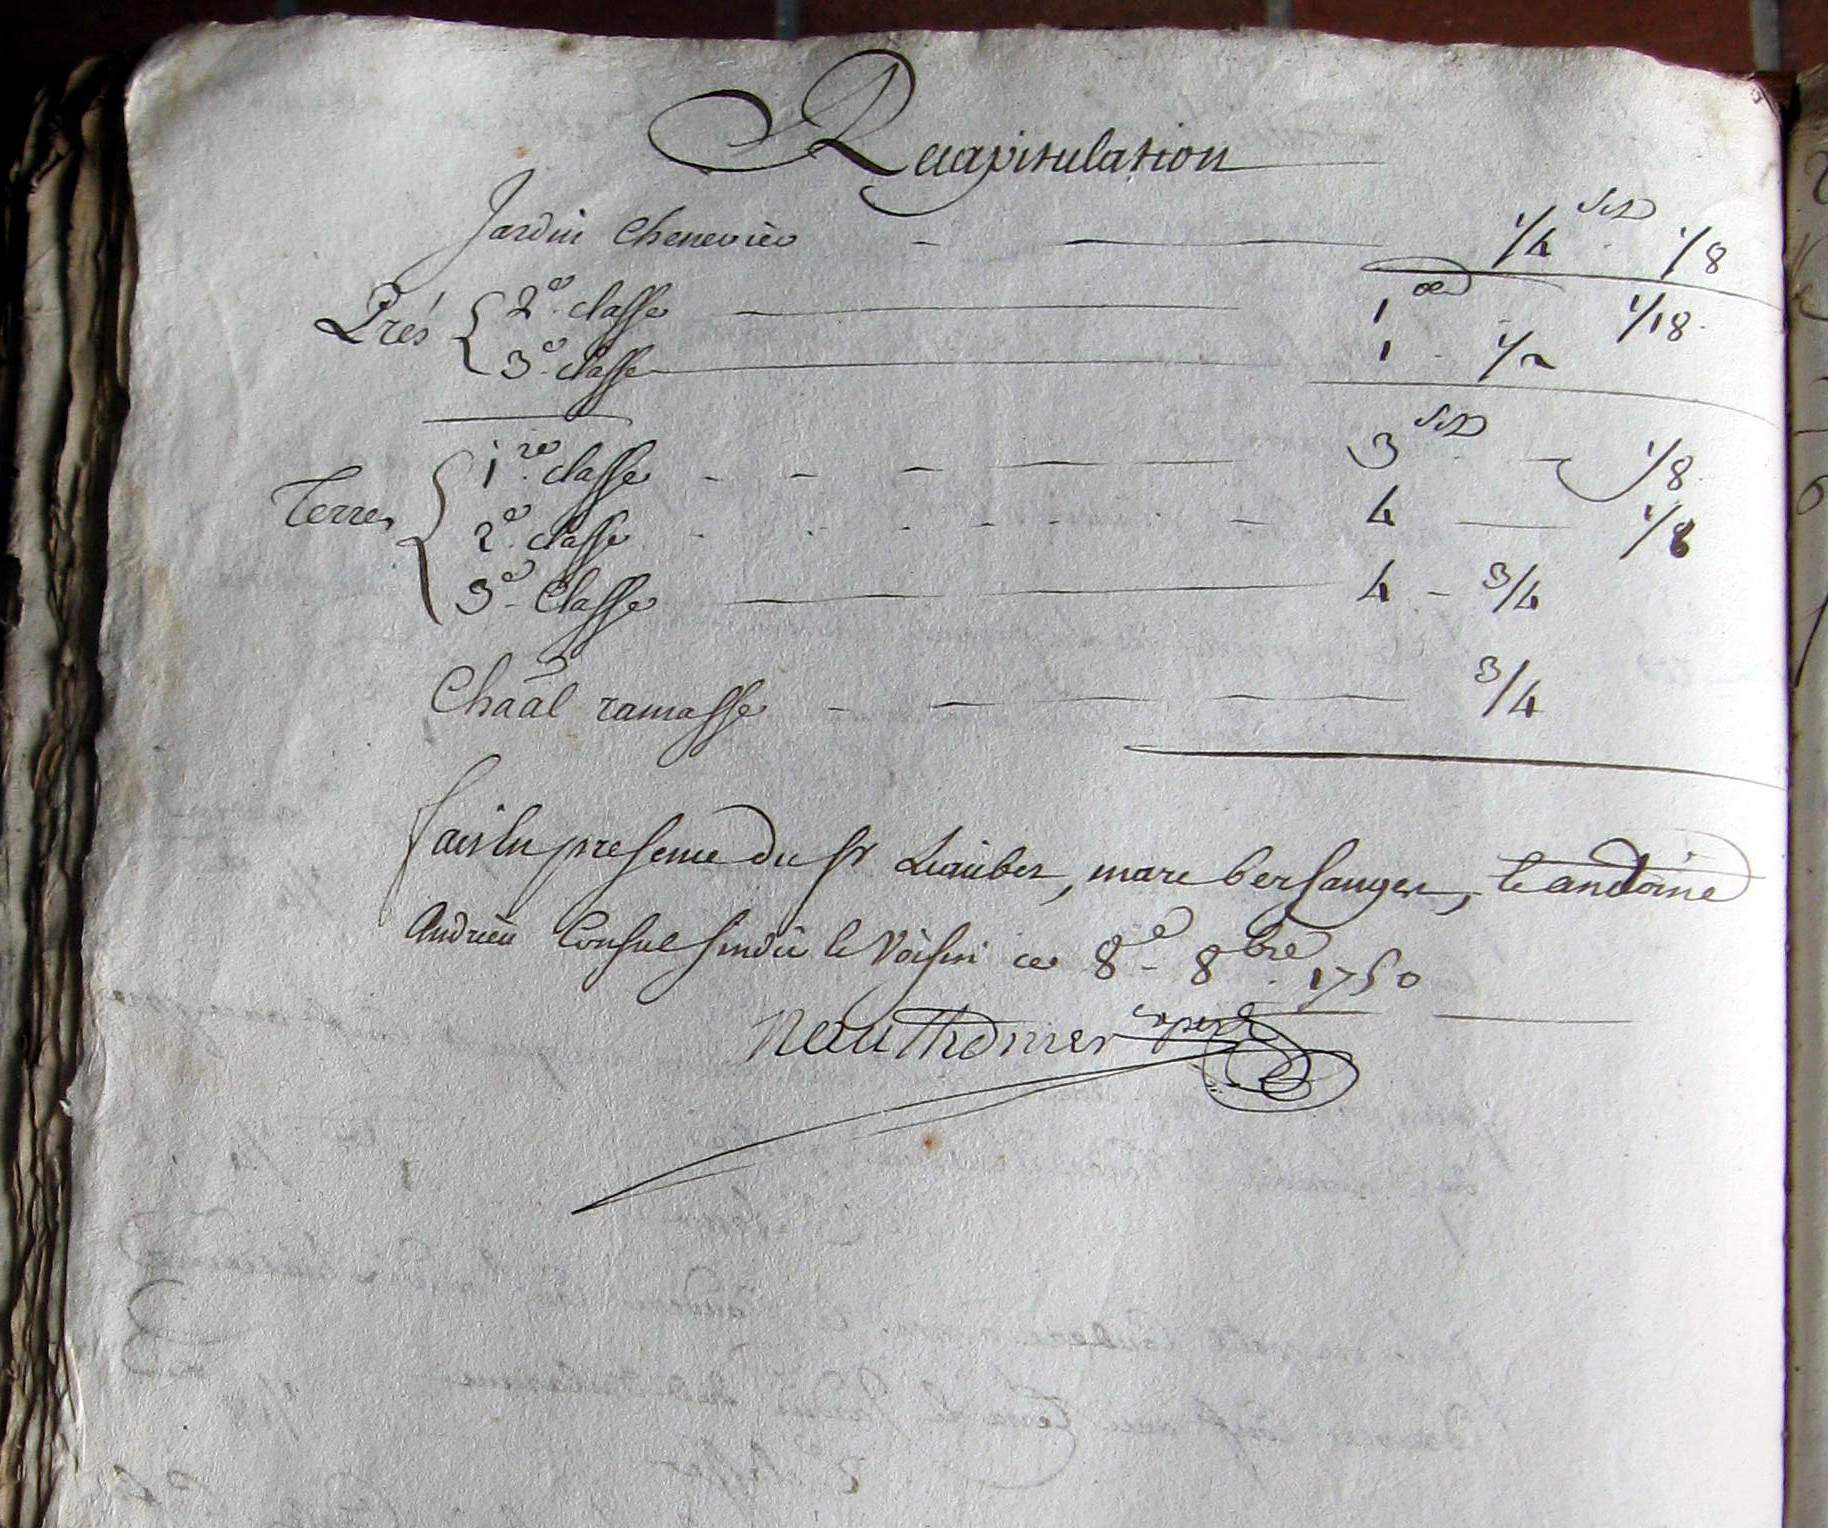 Recapitulation
Jardin Chenevier 1/4 1/8
Prés 2e classe 1 1/18
3e classe 1 1/2
Terres 1re classe 3 1/8
2e classe 4 1/8
3e Classe 4 3/4
Chaál ramasse 3/4
fait en presence du Sr , marc bersanger, et andoine
Andrieu Consul sindic le Voisin ce 8e 8bre 1750
expert